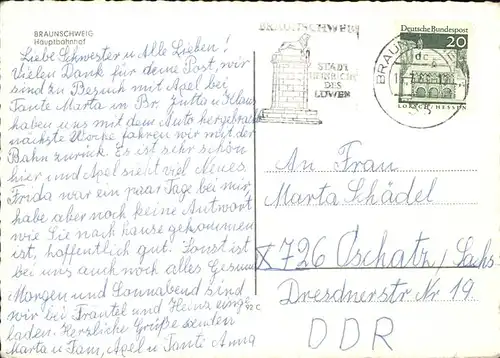 BRAUNSCHWEIG
Hauptbahnhof
Liebe Schwester u Alle Lieben!
Vielen Dank für deine Post, wir
sind zu Besuch mit Apel bei
Tante Marta in Br. Jutta u Klaus
haben uns mit dem Auto hergebracht
nächste Woche fahren wir mit der
Bahn zurück. Es ist sehr schön
hier und Apel sieht viel Neues,
Frida war ein paar Tage bei mir,
habe aber noch keine Antwort
wie Sie nach hause gekommen
ist, hoffentlich gut. Sonst ist
bei uns auch noch alles Gesund
Morgen und Sonnabend sind
wir bei Frantel und Heinz einge
laden. Herzliche Grüße senten
Marta u Fam, Apel u Tante Anna
BRAUNSCHWEIG
STADT
HEINRICHS
DES
LÖWEN
Deutsche Bundespost
20
LORSCH/HESSEN
An Frau
Marta Schädel
X 726 Oschatz/Sachs
Dresdnerstr Nr 19
DDR